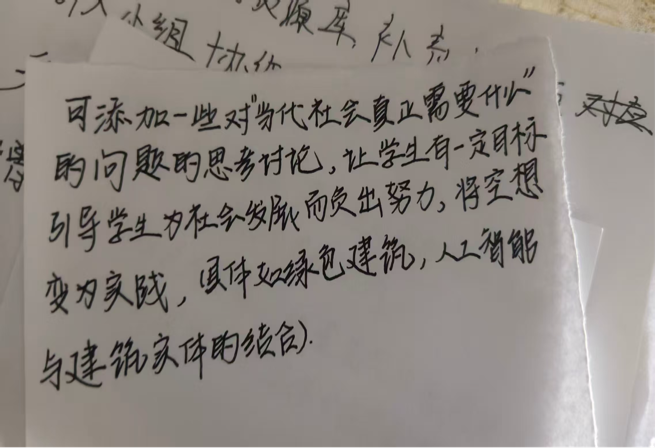 小组 协作
可添加一些对"当代社会真正需要什么"
的问题的思考讨论,让学生有一定目标
引导学生为社会发展而负出努力,将空想
变为实践,具体如绿色建筑,人工智能
与建筑实体的结合).